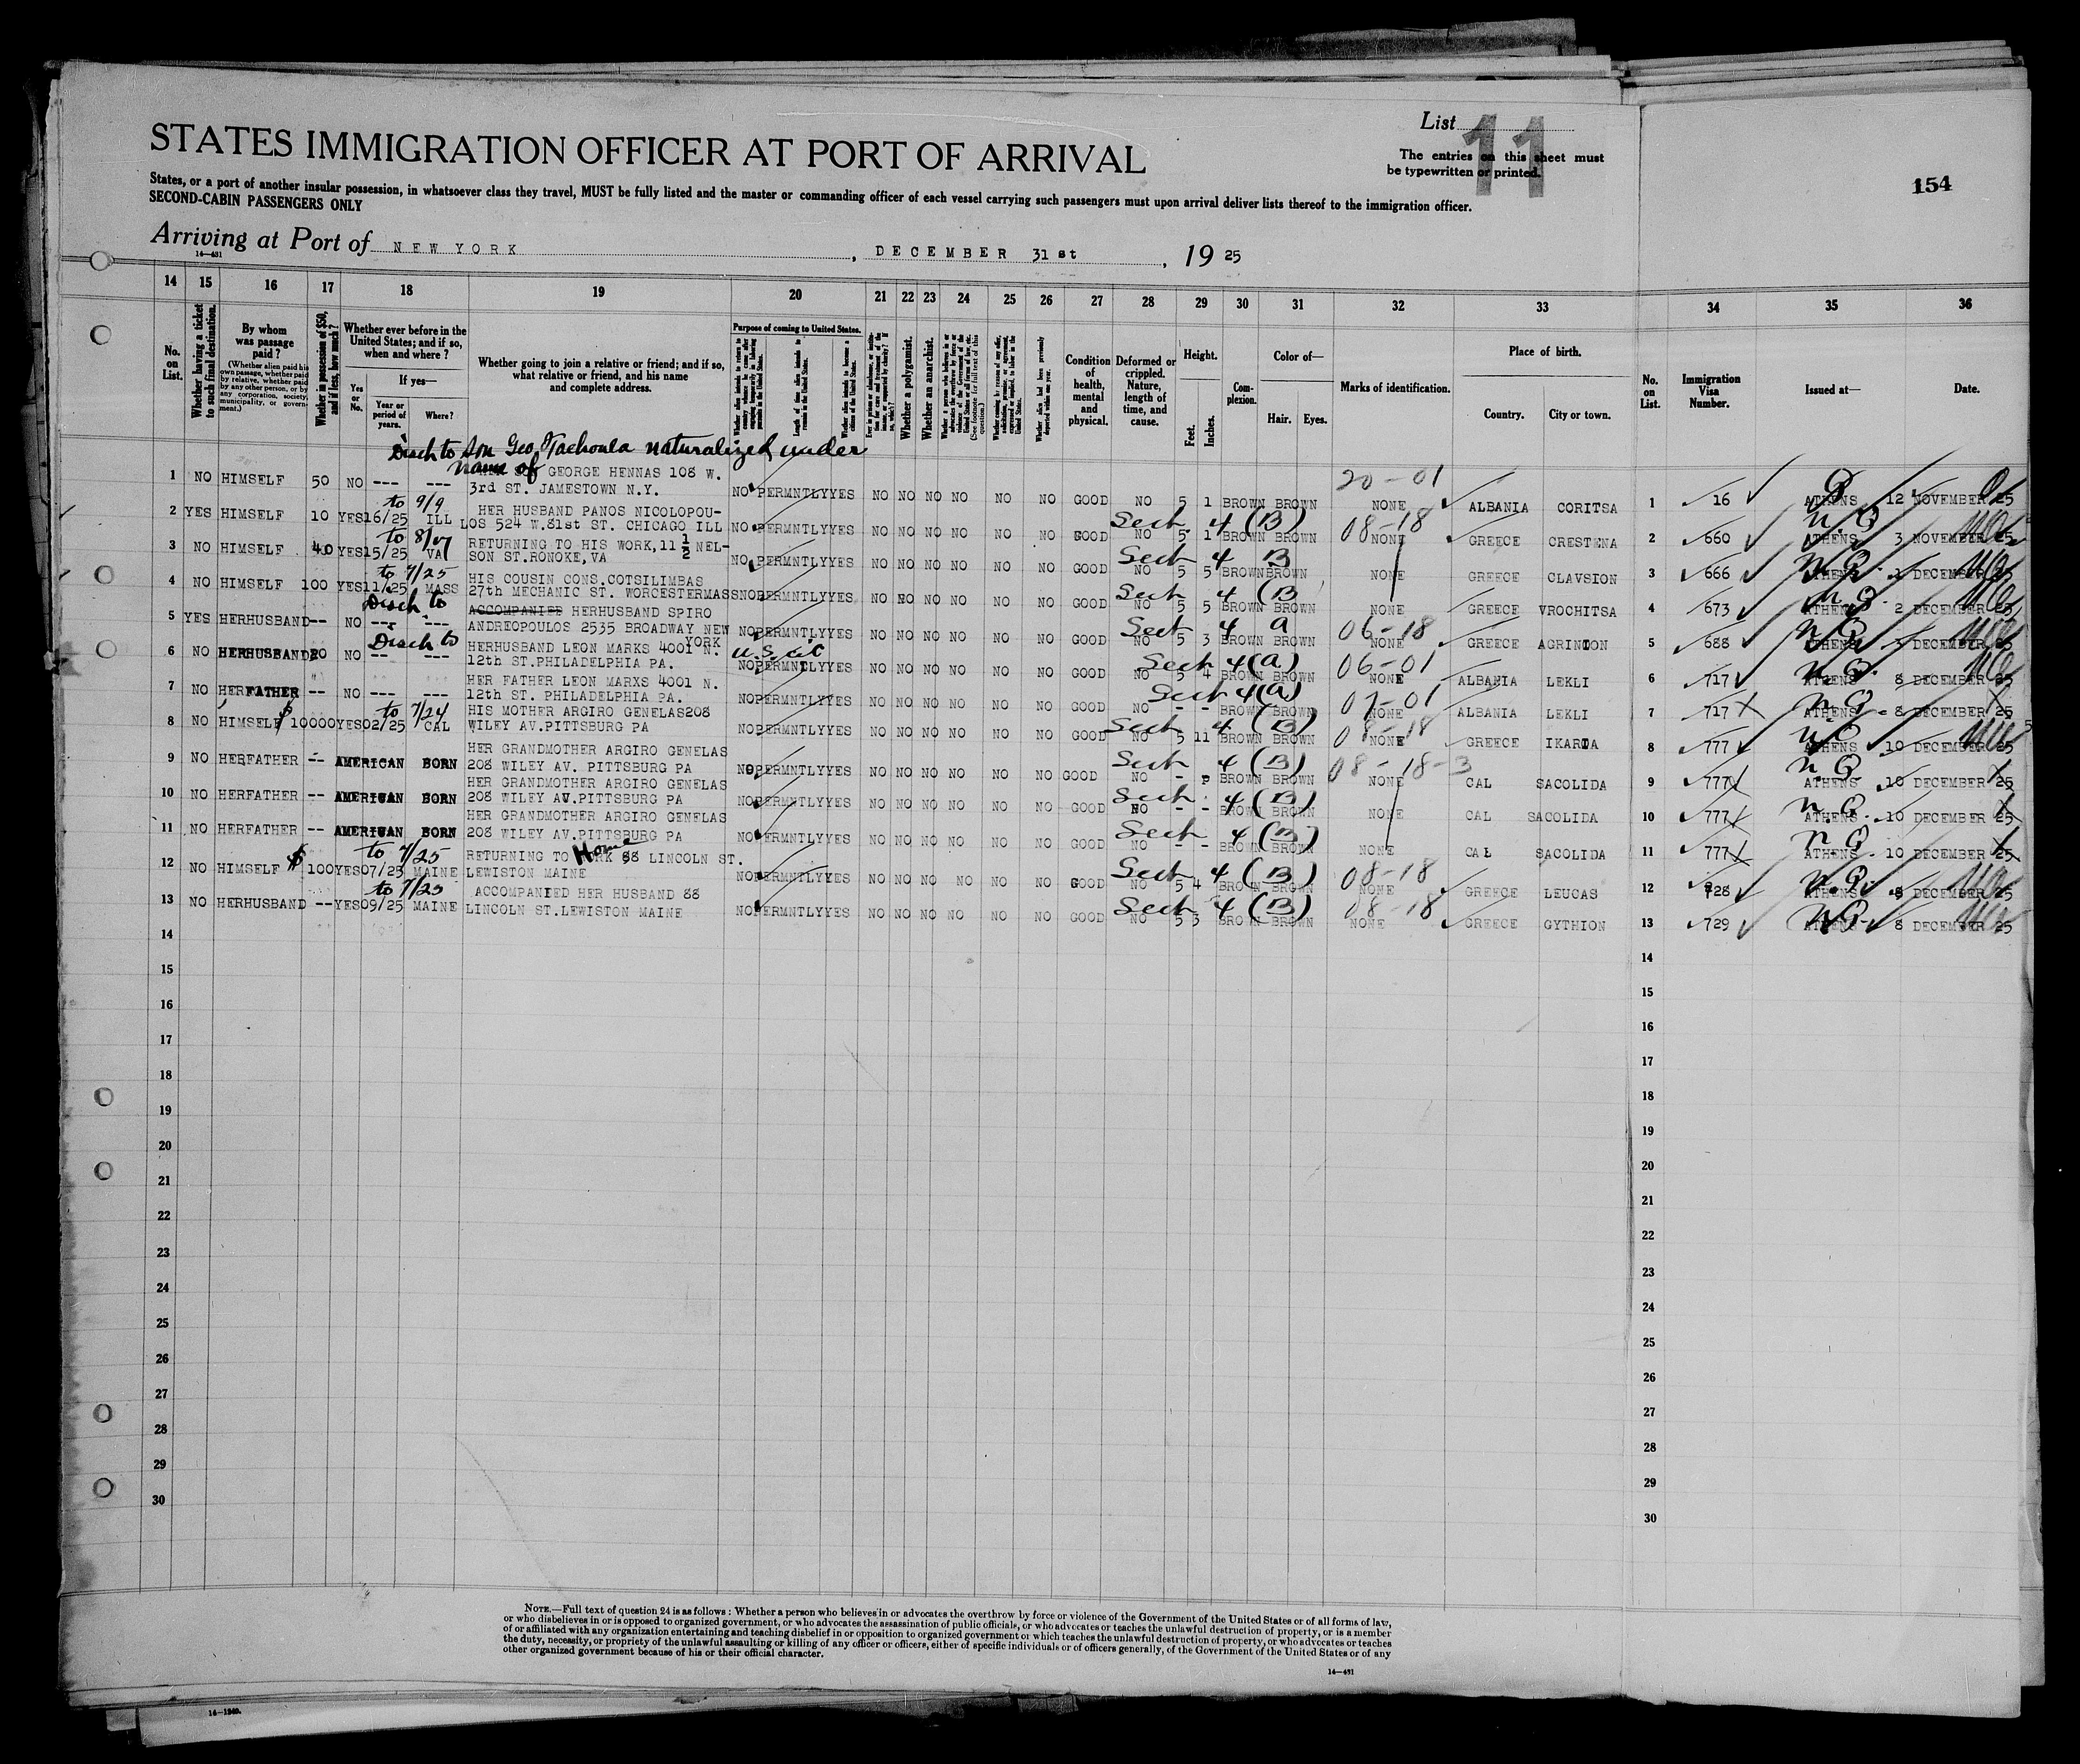 List 11
STATES IMMIGRATION OFFICER AT PORT OF ARRIVAL
The entries on this sheet must
be typewritten or printed.
154
States, or a port of another insular possession, in whatsoever class they travel, MUST be fully listed and the master or commanding officer of each vessel carrying such passengers must upon arrival deliver lists thereof to the immigration officer.
SECOND-CABIN PASSENGERS ONLY
Arriving at Port of NEW YORK, DECEMBER 31st, 1925
14—431
14 15 16 17 18 19 20 21 22 23 24 25 26 27 28 29 30 31 32 33 34 35 36
No. on List.
Whether having a ticket to such final destination.
By whom was passage paid?
(Whether alien paid his own passage, whether paid by relative, whether paid by any other person, or by any corporation, society, municipality, or government.)
Whether in possession of $50, and if less, how much?
Whether ever before in the United States; and if so, when and where?
Yes or No.
If yes—
Year or period of years.
Where?
Whether going to join a relative or friend; and if so, what relative or friend, and his name and complete address.
Purpose of coming to United States.
Length of time alien intends to remain in the United States.
Whether a polygamist.
Whether an anarchist.
Condition of health, mental and physical.
Deformed or crippled. Nature, length of time, and cause.
Height.
Feet. Inches.
Complexion.
Color of—
Hair. Eyes.
Marks of identification.
Place of birth.
Country. City or town.
No. on List.
Immigration Visa Number.
Issued at—
Date.
Disch to son Geo Tachoula naturalized under
name of
1 NO HIMSELF 50 NO --- --- GEORGE HENNAS 108 W. 3rd ST. JAMESTOWN N.Y. NO PERMNTLY YES NO NO NO NO NO NO GOOD NO 5 1 BROWN BROWN 20-01 NONE ALBANIA CORITSA 1 16 ATHENS 12 NOVEMBER 25
2 YES HIMSELF 10 YES 16/25 to 9/9 ILL HER HUSBAND PANOS NICOLOPOULOS 524 W.81st ST. CHICAGO ILL NO PERMNTLY YES NO NO NO NO NO NO GOOD NO 5 1 BROWN BROWN Sect. 4 (B) 08-18 NONE GREECE CRESTENA 2 660 ATHENS 3 NOVEMBER 25
3 NO HIMSELF 40 YES 15/25 to 8/07 VA RETURNING TO HIS WORK, 11 1/2 NELSON ST.RONOKE,VA NO PERMNTLY YES NO NO NO NO NO NO GOOD NO 5 5 BROWN BROWN Sect 4 B NONE GREECE CLAVSION 3 666 ATHENS 1 DECEMBER 25
4 NO HIMSELF 100 YES 11/25 to 7/25 MASS HIS COUSIN CONS.COTSILIMBAS 27th MECHANIC ST. WORCESTERMASS NO PERMNTLY YES NO NO NO NO NO NO GOOD NO 5 5 BROWN BROWN Sect 4 (B NONE GREECE VROCHITSA 4 673 ATHENS 2 DECEMBER 25
5 YES HERHUSBAND -- NO --- --- Disch to ACCOMPANIED HERHUSBAND SPIRO ANDREOPOULOS 2535 BROADWAY NEW YORK NO PERMNTLY YES NO NO NO NO NO NO GOOD NO 5 3 BROWN BROWN Sect 4 a 06-18 NONE GREECE AGRINION 5 688 ATHENS 3 DECEMBER 25
6 NO HERHUSBAND 20 NO -- --- Disch to HERHUSBAND LEON MARKS 4001 N. 12th ST.PHILADELPHIA PA. U.S. Cit NO PERMNTLY YES NO NO NO NO NO NO GOOD NO 5 4 BROWN BROWN Sect 4(a) 06-01 NONE ALBANIA LEKLI 6 717 ATHENS 8 DECEMBER 25
7 NO HERFATHER -- NO --- --- HER FATHER LEON MARXS 4001 N. 12th ST. PHILADELPHIA PA. NO PERMNTLY YES NO NO NO NO NO NO GOOD NO - - BROWN BROWN Sect 4(a) 07-01 NONE ALBANIA LEKLI 7 717 ATHENS 8 DECEMBER 25
8 NO HIMSELF $10000 YES 02/25 to 7/24 CAL HIS MOTHER ARGIRO GENELAS208 WILEY AV.PITTSBURG PA NO PERMNTLY YES NO NO NO NO NO NO GOOD NO 5 11 BROWN BROWN Sect 4 (B) 08-18 NONE GREECE IKARIA 8 777 ATHENS 10 DECEMBER 25
9 NO HERFATHER -- AMERICAN BORN HER GRANDMOTHER ARGIRO GENELAS 208 WILEY AV. PITTSBURG PA NO PERMNTLY YES NO NO NO NO NO NO GOOD NO - - BROWN BROWN Sect 4 (B) 08-18-3 NONE CAL SACOLIDA 9 777 ATHENS 10 DECEMBER 25
10 NO HERFATHER -- AMERICAN BORN HER GRANDMOTHER ARGIRO GENELAS 208 WILEY AV.PITTSBURG PA NO PERMNTLY YES NO NO NO NO NO NO GOOD NO - - BROWN BROWN Sect 4 (B) NONE CAL SACOLIDA 10 777 ATHENS 10 DECEMBER 25
11 NO HERFATHER -- AMERICAN BORN HER GRANDMOTHER ARGIRO GENELAS 208 WILEY AV.PITTSBURG PA NO PERMNTLY YES NO NO NO NO NO NO GOOD NO - - BROWN BROWN Sect 4 (B) NONE CAL SACOLIDA 11 777 ATHENS 10 DECEMBER 25
12 NO HIMSELF $100 YES 07/25 to 7/25 MAINE RETURNING TO Home 88 LINCOLN ST. LEWISTON MAINE NO PERMNTLY YES NO NO NO NO NO NO GOOD NO 5 4 BROWN BROWN Sect 4 (B) 08-18 NONE GREECE LEUCAS 12 728 ATHENS 8 DECEMBER 25
13 NO HERHUSBAND -- YES 09/25 to 7/25 MAINE ACCOMPANIED HER HUSBAND 88 LINCOLN ST.LEWISTON MAINE NO PERMNTLY YES NO NO NO NO NO NO GOOD NO 5 3 BROWN BROWN Sect 4 (B) 08-18 NONE GREECE GYTHION 13 729 ATHENS 8 DECEMBER 25
14 14
15 15
16 16
17 17
18 18
19 19
20 20
21 21
22 22
23 23
24 24
25 25
26 26
27 27
28 28
29 29
30 30
NOTE.—Full text of question 24 is as follows: Whether a person who believes in or advocates the overthrow by force or violence of the Government of the United States or of all forms of law,
or who disbelieves in or is opposed to organized government, or who advocates the assassination of public officials, or who advocates or teaches the unlawful destruction of property, or is a member
of or affiliated with any organization entertaining and teaching disbelief in or opposition to organized government or which teaches the unlawful destruction of property, or who advocates or teaches
the duty, necessity, or propriety of the unlawful assaulting or killing of any officer or officers, either of specific individuals or of officers generally, of the Government of the United States or of any
other organized government because of his or their official character.
14—431
14—1940.